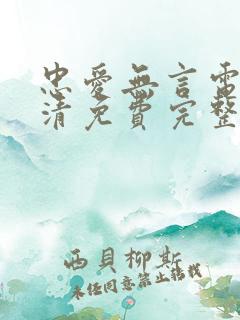 忠愛無言電
清免費完整
西貝柳斯
未經同意禁止轉載